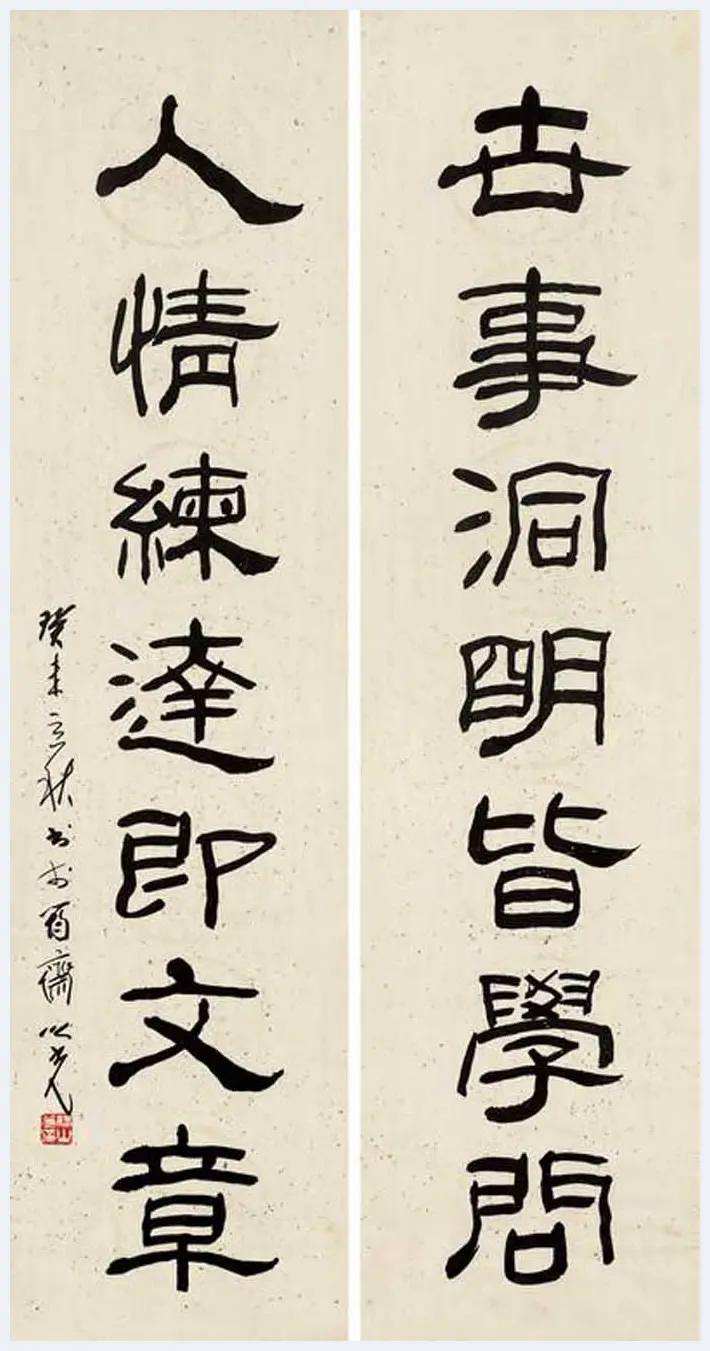 世事洞明皆學問
人情練達即文章
癸未立秋書於百齋